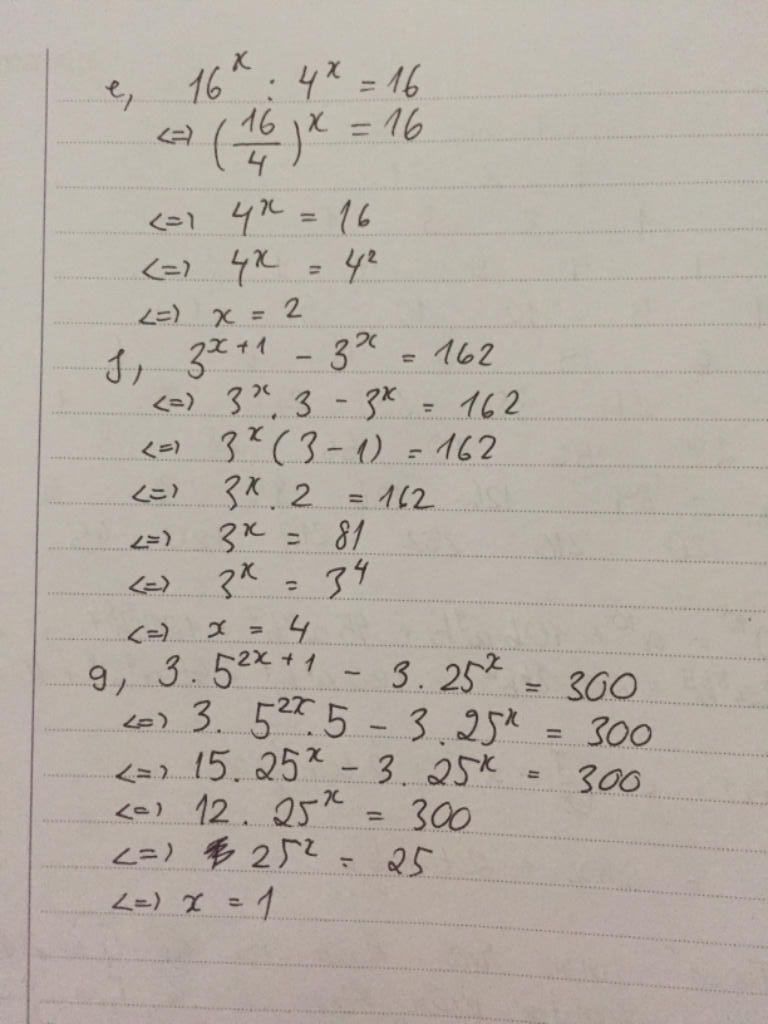 e, 16^x : 4^x = 16
<=> (16/4)^x = 16
<=> 4^x = 16
<=> 4^x = 4^2
<=> x = 2
f, 3^(x+1) - 3^x = 162
<=> 3^x . 3 - 3^x = 162
<=> 3^x (3 - 1) = 162
<=> 3^x . 2 = 162
<=> 3^x = 81
<=> 3^x = 3^4
<=> x = 4
g, 3 . 5^(2x+1) - 3 . 25^x = 300
<=> 3 . 5^(2x) . 5 - 3 . 25^x = 300
<=> 15 . 25^x - 3 . 25^x = 300
<=> 12 . 25^x = 300
<=> 25^x = 25
<=> x = 1